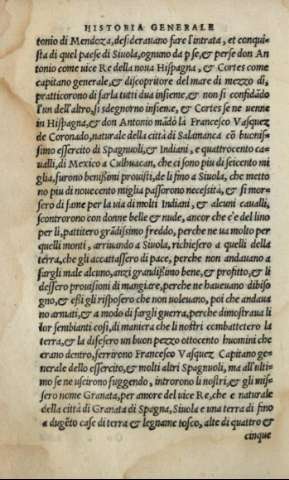 HISTORIA GENERALE
tonio di Mendoza, desiderauano fare l'intrata, et conqui
sta di quel paese di Siuola, ognuno da p se, & perse don An
tonio come vice Re della noua Hispagna, & Cortes come
capitano generale, & discopritore del mare di mezzo dì,
pratticorono di farla tutti dua insieme, & non si confidādo
l'un dell'altro, si sdegnorno insieme, & Cortes se ne uenne
in Hispagna, & don Antonio mādò là Francesco Vasquez
de Coronado, naturale della città di Salamanca cō buonis
simo essercito di Spagnuoli, & Indiani, e quattrocento ca
ualli, di Mexico a Culhuacan, che ci sono piu di seicento mi
glia, furono benissimo prouisti, de li fino a Siuola, che metto
no piu di nouecento miglia passorono necessità, & si mor-
sero di fame per la uia di molti Indiani, & alcuni caualli,
scontrorono con donne belle & nude, ancor che c'è del lino
per li, pattitero grādissimo freddo, perche ne ua molto per
quelli monti, arriuando a Siuola, richiesero a quelli della
terra, che gli accattassero di pace, perche non andauano a
fargli male alcuno, anzi grandissimo bene, & profitto, & li
dessero prouisioni di mangiare, perche ne haueuano dibiso
gno, & essi gli risposero che non uoleuano, poi che andaua
no armati, & a modo di fargli guerra, perche dimostraua li
lor sembianti cosi, di maniera che li nostri combattetero la
terra, & la difesero un buon pezzo ottocento huomini che
erano dentro, ferrirono Francesco Vasquez Capitano ge-
nerale dello essercito, & molti altri Spagnuoli, ma all'ulti-
mo se ne uscirono fuggendo, introrono li nostri, & gli mis-
sero nome Granata, per amore del vice Re, che e naturale
della città di Granata di Spagna, Siuola e una terra di fino
a dugēto case di terra & legname tosco, alte di quattro &
cinque